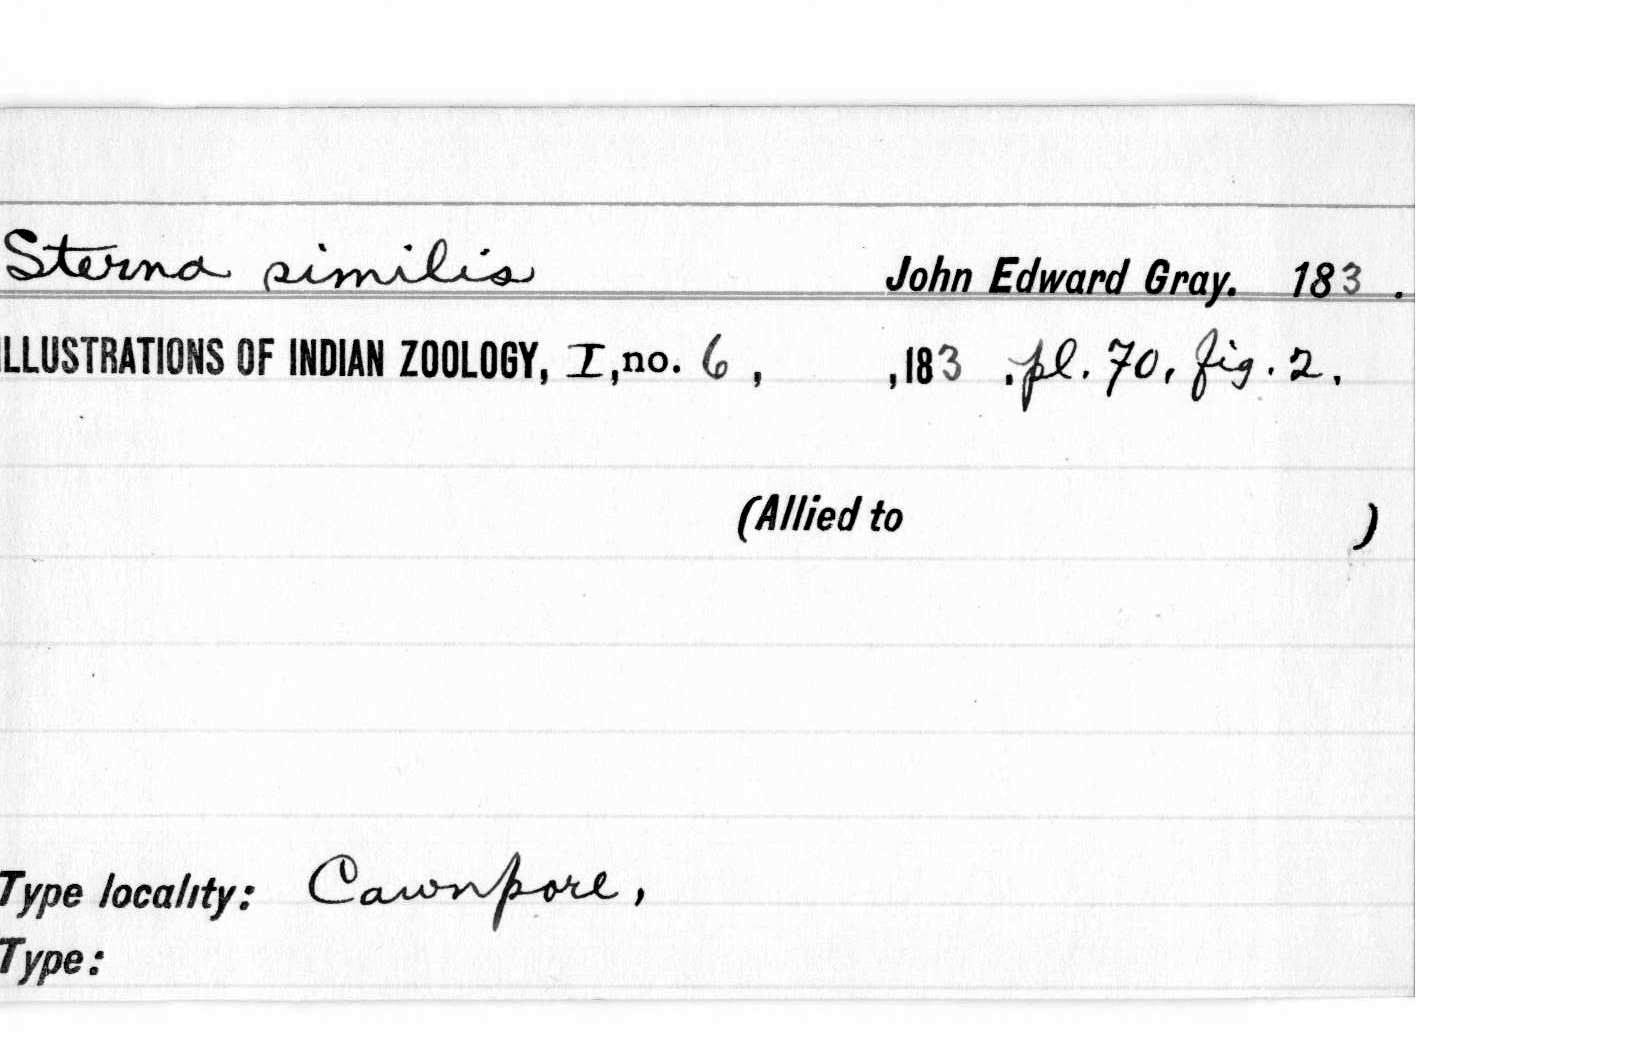 Sterna similis John Edward Gray. 183 .
ILLUSTRATIONS OF INDIAN ZOOLOGY, I, no. 6 , ,183 , pl. 70, fig. 2.
(Allied to )
Type locality: Cawnpore,
Type: